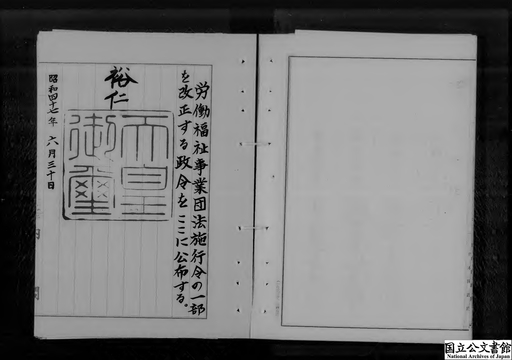 労働福祉事業団法施行令の一部
を改正する政令をここに公布する。
裕仁
天皇
御璽
昭和四十七年六月三十日
国立公文書館
National Archives of Japan